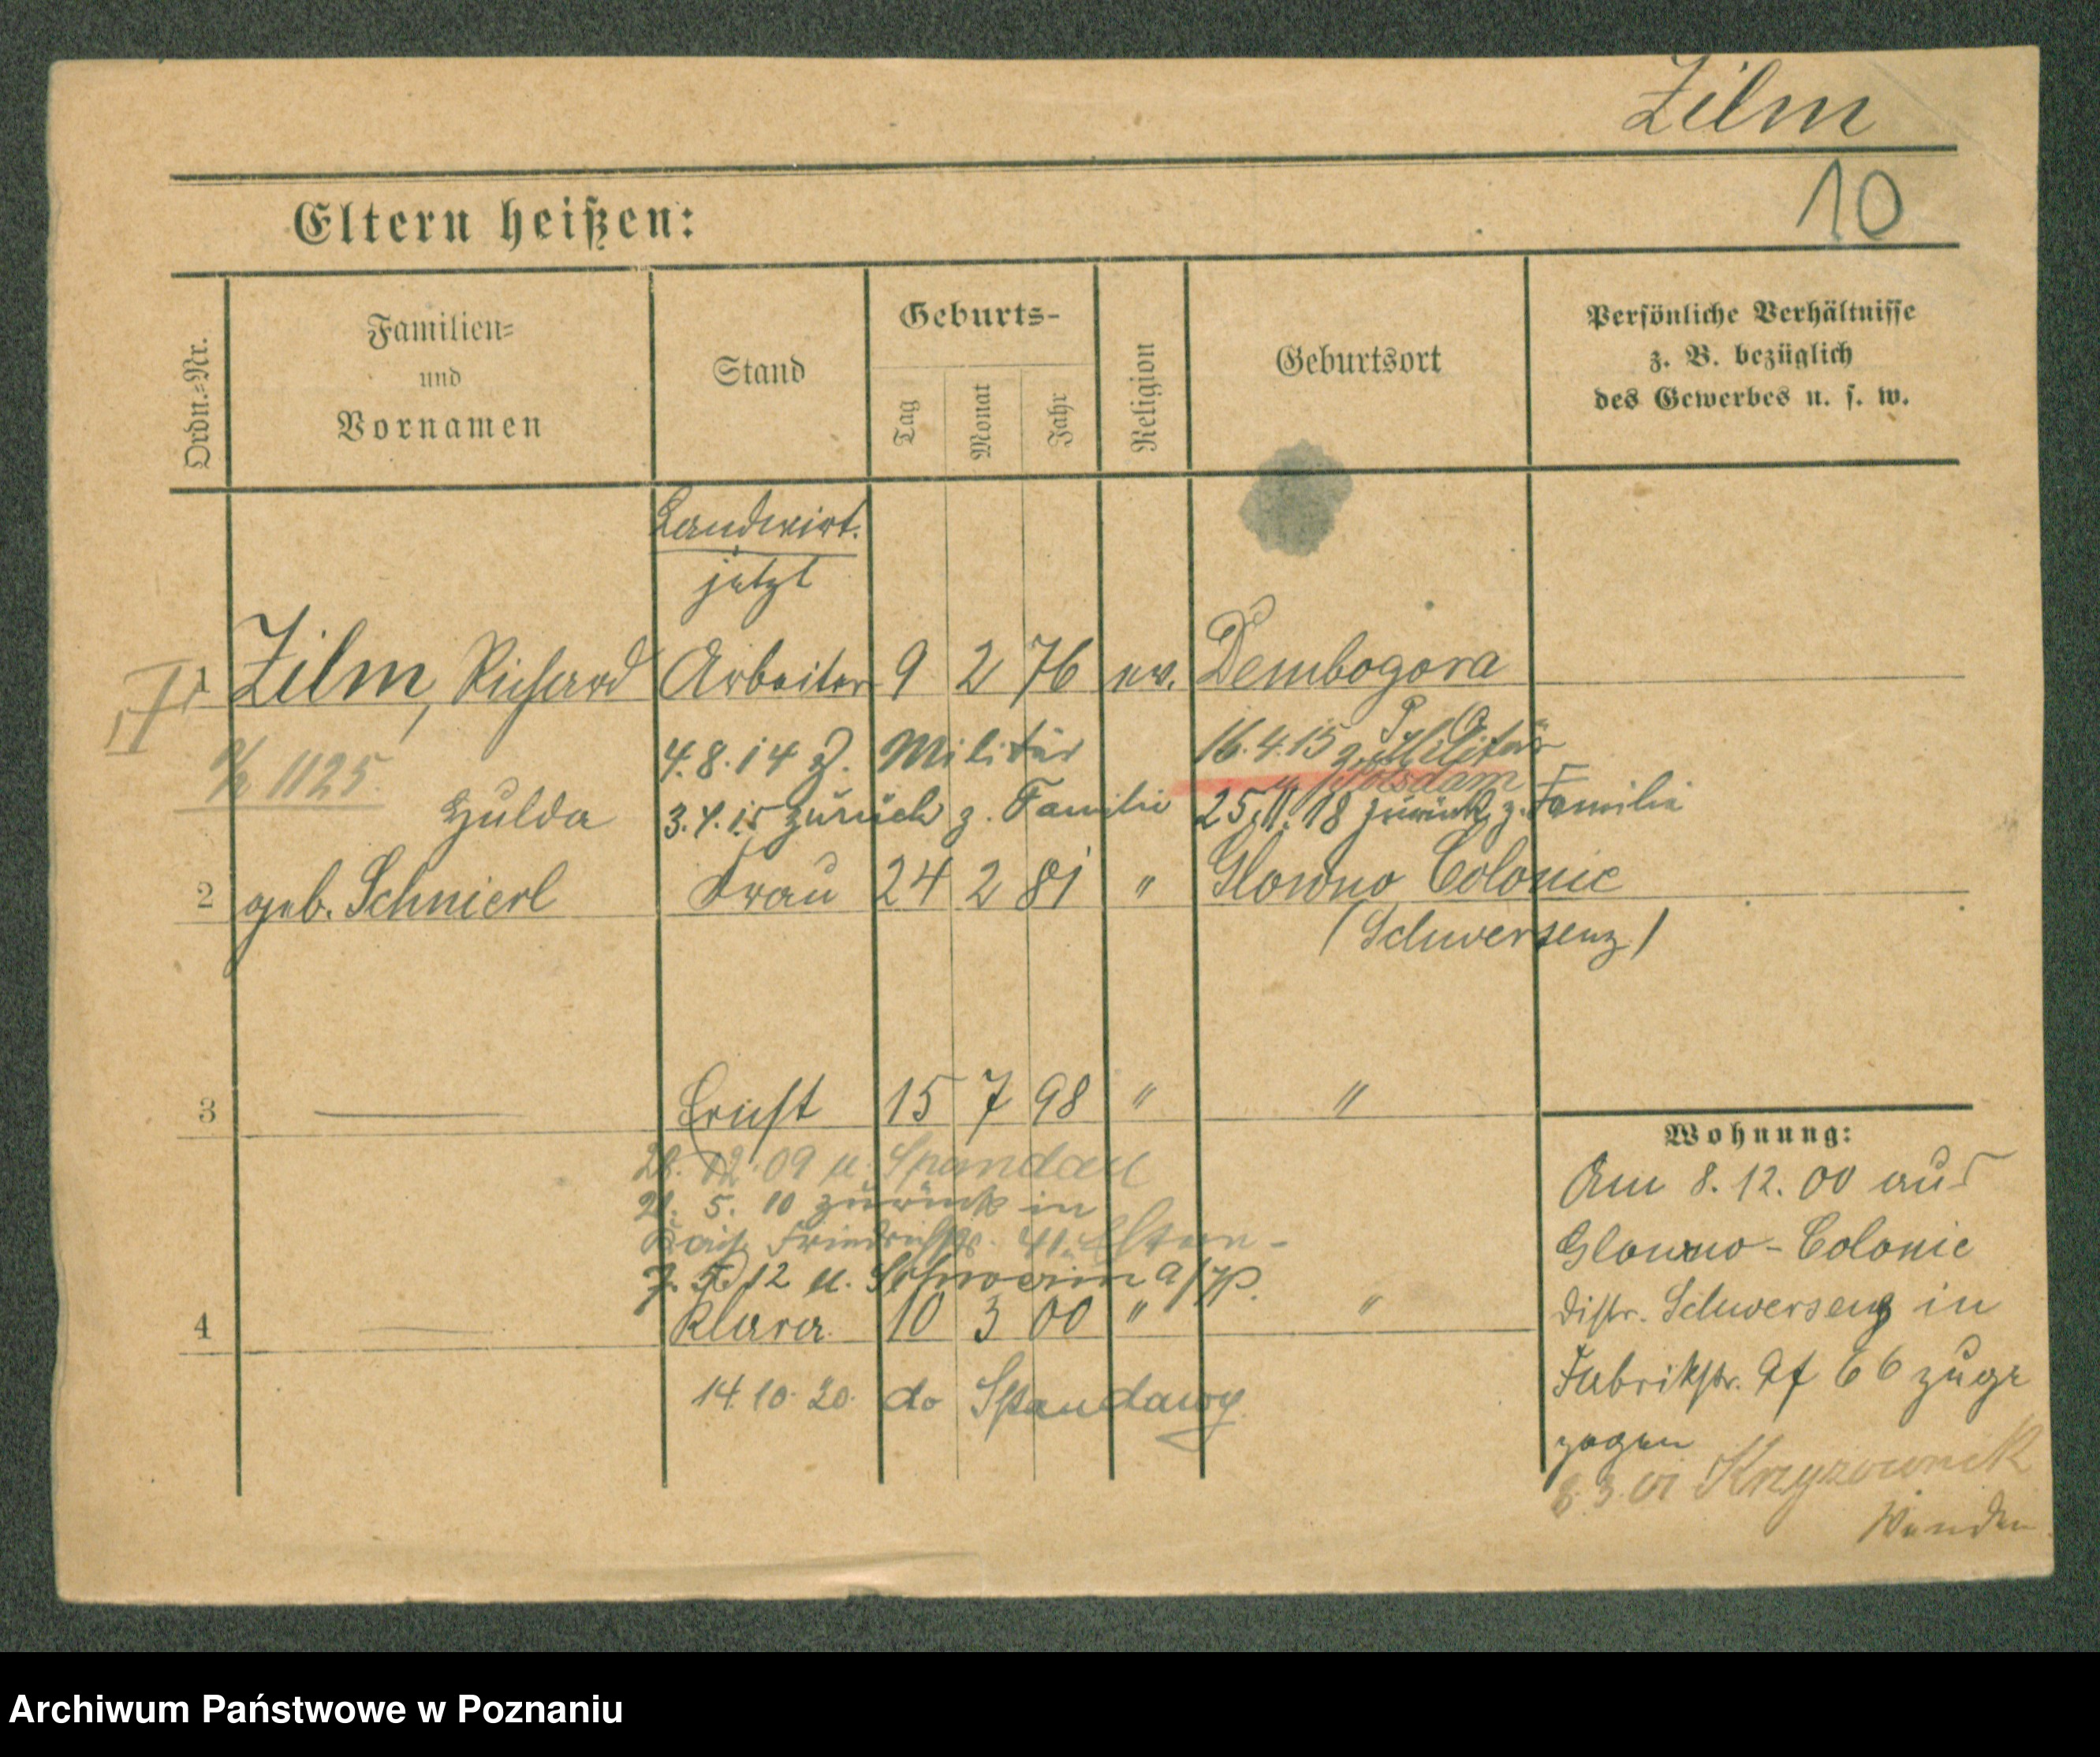 Zilm
10
Eltern heißen:
Ordn.-Nr.
Familien-
und
Vornamen
Stand
Geburts-
Tag
Monat
Jahr
Religion
Geburtsort
Persönliche Verhältnisse
z. B. bezüglich
des Gewerbes u. s. w.
Landwirt.
jetzt
1 Zilm, Richard Arbeiter 9 2 76 ev. Dembogora
4.8.14 z. Militär 16.4.15 z. Militär
1125. n. Potsdam
Hulda 3.4.15 zurück z. Familie 25.11.18 zurück z. Familie
2 geb. Schnierl Frau 24 2 81 " Glowno Colonie
(Schwersenz)
3 — Ernst 15 7 98 " "
28. 12. 09 n. Spandau
21. 5. 10 zurück in
Friedrichstr. Eltern -
12 n. Schwerin a/W.
4 — Klara 10 3 00 " "
14. 10. 20. do Spandawy
Wohnung:
Am 8. 12. 00 aus
Glowno - Colonie
Distr. Schwersenz in
Fabrikstr. 66 zuge
zogen
8. 3. 01
Wenden